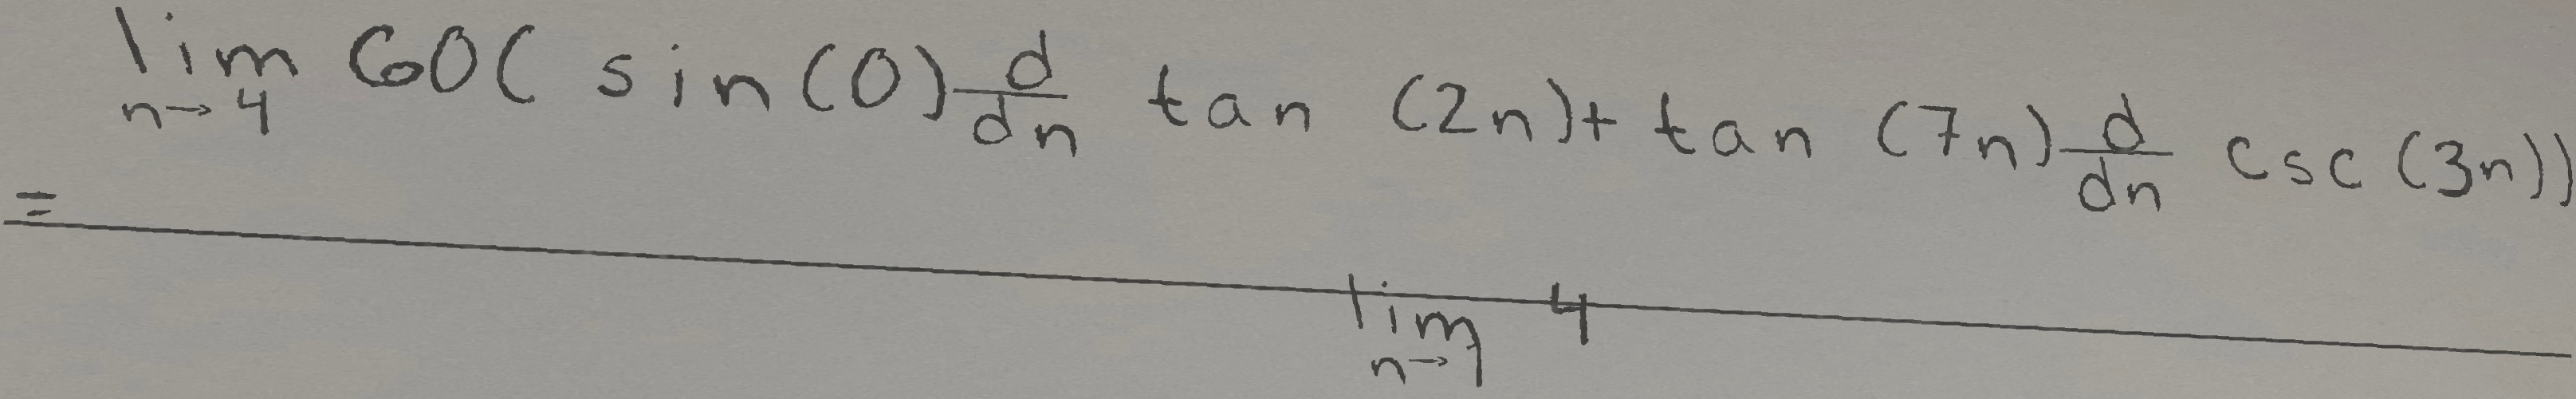 lim n→4 60( sin(0) d/dn tan (2n)+ tan (7n) d/dn csc (3n))
=
lim n→1 4